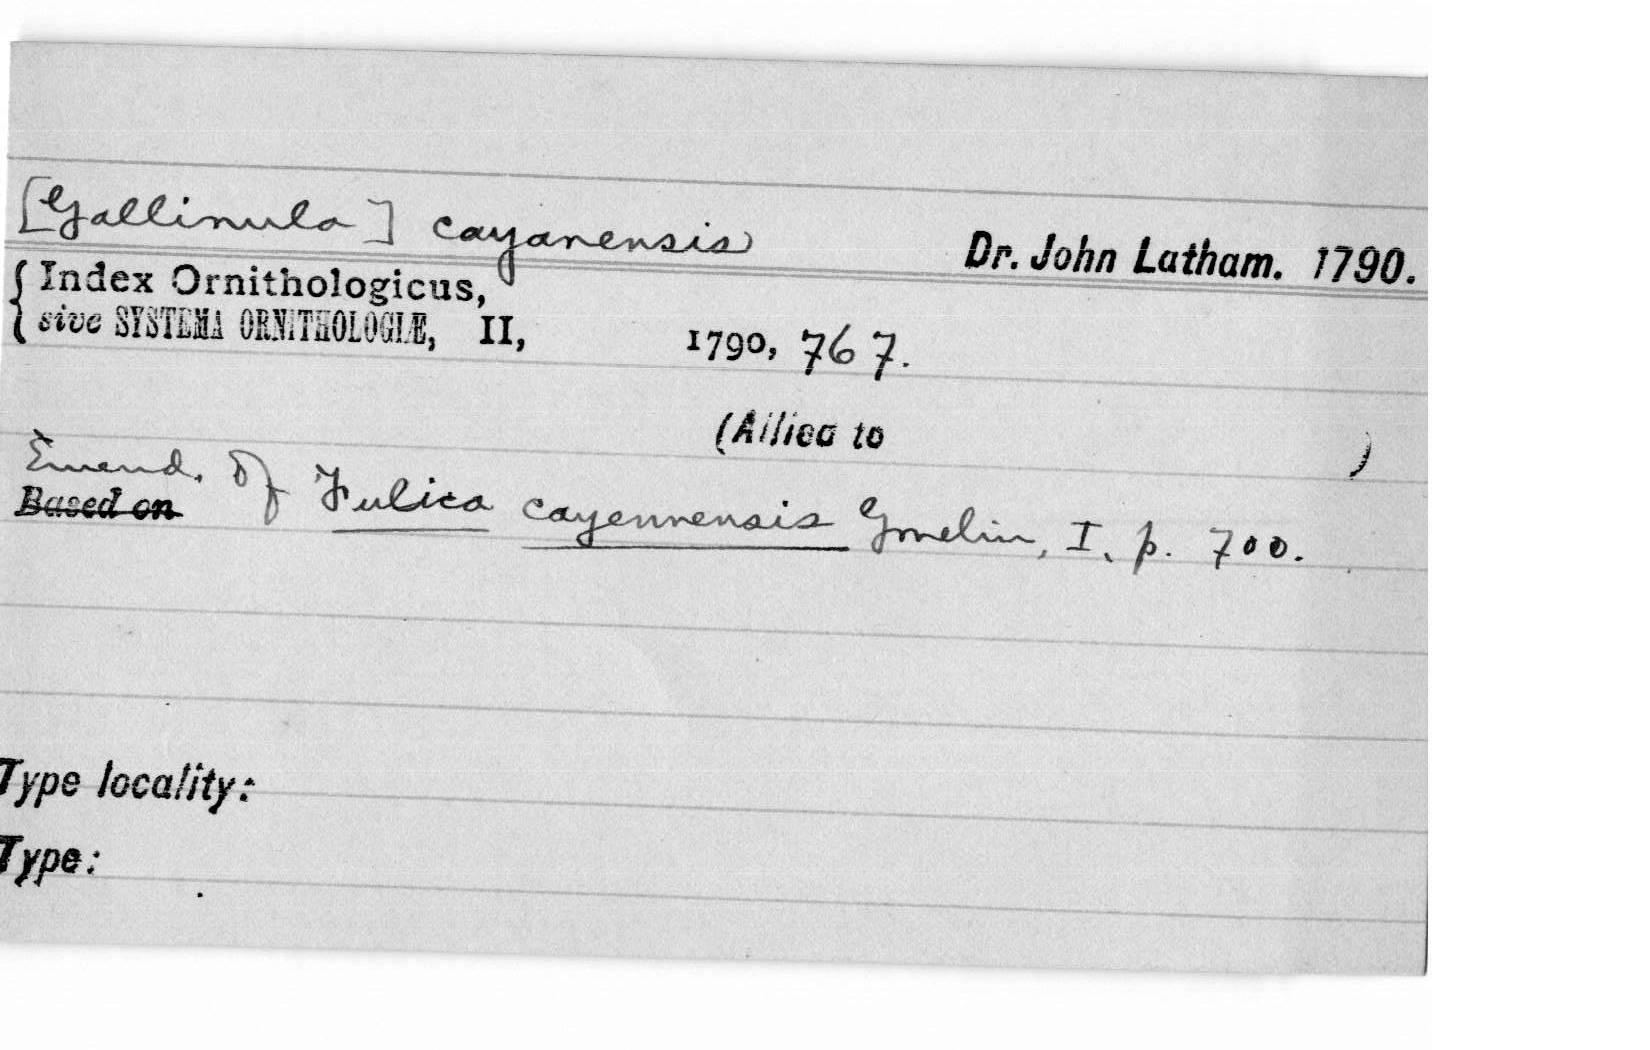 [Gallinula] cayanensis Dr. John Latham. 1790.
Index Ornithologicus,
sive SYSTEMA ORNITHOLOGIÆ, II, 1790, 767.
(Allied to )
Emend. of Fulica cayennensis Gmelin, I, p. 700.
Based on
Type locality:
Type: